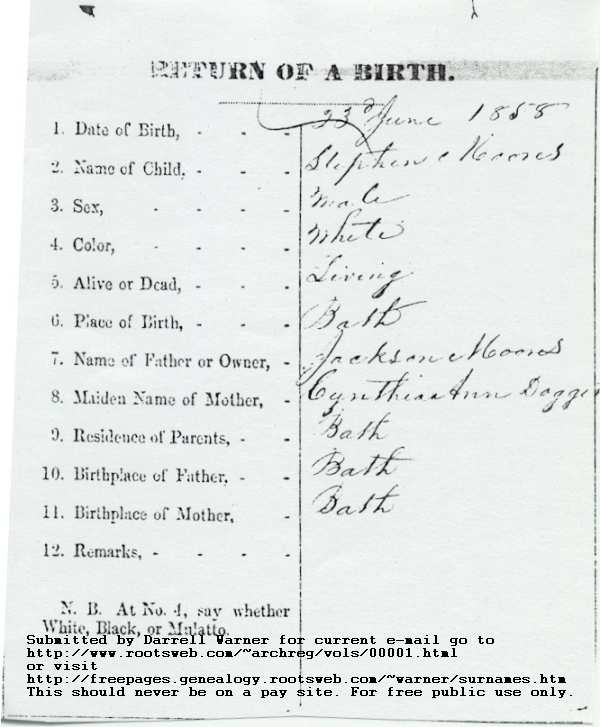 RETURN OF A BIRTH.
1. Date of Birth, - - - 23d June 1858
2. Name of Child, - - - Stephen Moores
3. Sex, - - - - Male
4. Color, - - - - White
5. Alive or Dead, - - - Living
6. Place of Birth, - - - Bath
7. Name of Father or Owner, - Jackson Moores
8. Maiden Name of Mother, - Cynthia Ann
9. Residence of Parents, - - Bath
10. Birthplace of Father, - - Bath
11. Birthplace of Mother, - Bath
12. Remarks, - - - -
N. B. At No. 4, say whether
White, Black, or Mulatto.
Submitted by Darrell Warner for current e-mail go to
http://www.rootsweb.com/~archreg/vols/00001.html
or visit
http://freepages.genealogy.rootsweb.com/~warner/surnames.htm
This should never be on a pay site. For free public use only.